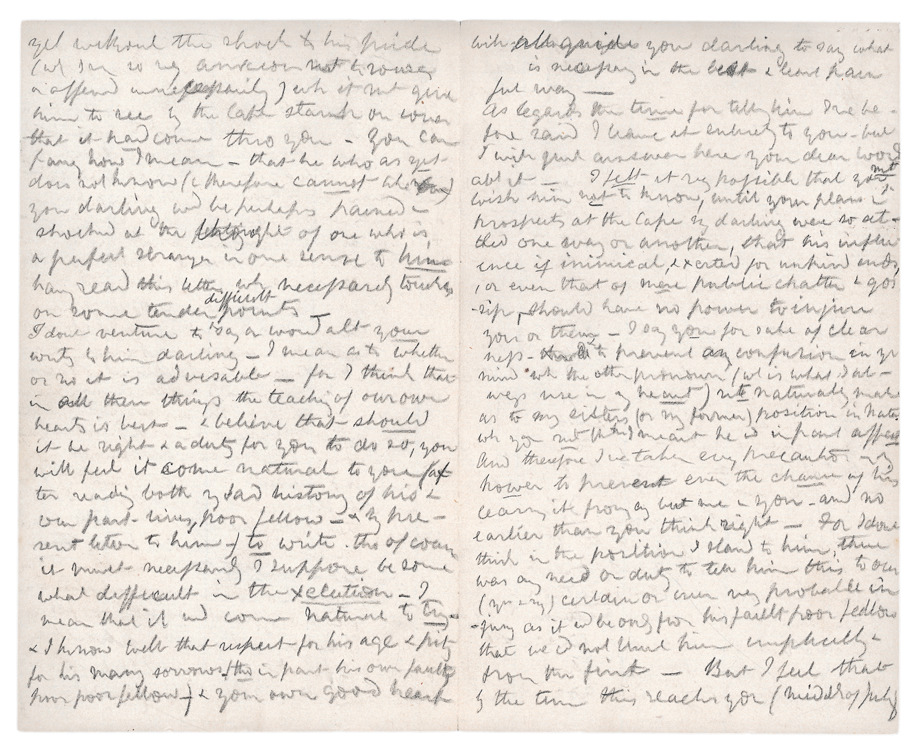 yet without the shock to his pride
(wh I am so very anxious not to rouse
or offend unnecessarily) wh it mt give
him to see by the Cape stamp on cover
that it had come thro you - You can
fancy how I mean - that he who as yet
does not know (& therefore cannot
you darling wd be perhaps pained -
shocked at the thought of one who is
a perfect stranger in one sense to him
havg read this letter wh necessarily touches
on some tender difficult points -
I dont venture to say a word abt your
writg to him darling - I mean as to whether
or no it is advisable - for I think that
in all these things the teachg of our own
hearts is best - & believe that should
it be right & a duty for you to do so, you
will feel it come natural to you (af
ter readg both my sad history of his &
own past lives, poor fellow - & my pre-
sent letter to him) to write. tho of course
it must necessarily I suppose be some
what difficult in the xecution - I
mean that it wd come natural to try -
& I know well that respect for his age & pity
for his many sorrows (tho in part his own fault
poor poor fellow) & your own good heart
with guide you darling to say what
is necessary in the best & least pain
ful way -
As regards the time for tellg him I've be-
fore said I leave it entirely to you - but
I wish just answer here your dear word
abt it - I felt it very possible that you mt
wish him not to know, until your plans &
prospects at the Cape my darling were so set-
tled one way or another, that his influ
ence if inimical, exerted for unkind ends,
, or even that of mere public chatter & gos
-sip, should have no power to injure
you or them - I say you for sake of clear
ness - to prevent any confusion in yr
mind wh the other pronoun (wh is what I al-
ways use in my heart) mt naturally make
as to my sisters (or my former) position in Natal
wh you mt think meant he'd in part affect
And therefore I've taken every precaution
however to prevent even the chance of his
learng it from any but me - you - and no
earlier than you think right - For I dont
think in the position I stand to him, there
was any need or duty to tell him this to our
(yr & my) certain or even very probable in
-jury as it wd be only for his fault poor fellow
that we'd not trust him implicitly -
from the first - But I feel that
by the time this reaches you (middle of July